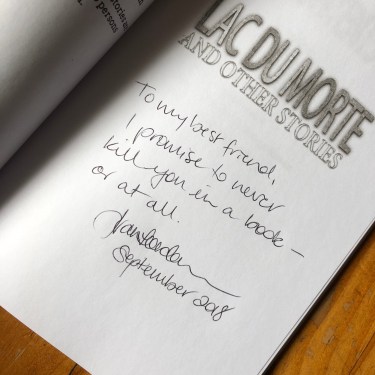 persons
LAC DU MORTE
AND OTHER STORIES
To my best friend,
I promise to never
kill you in a book –
or at all.
September 2018